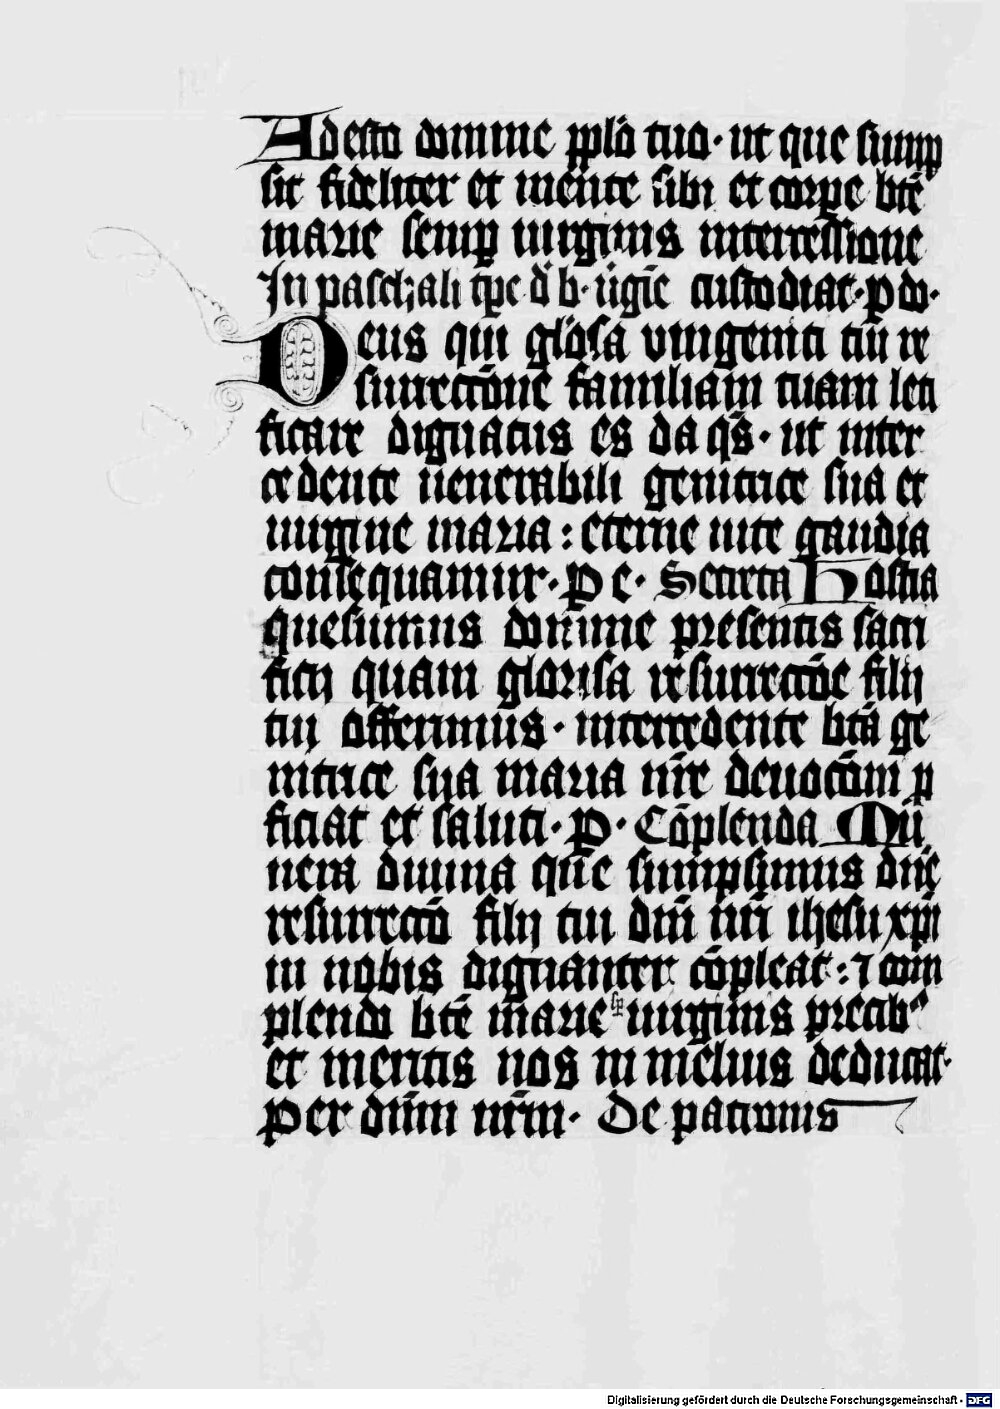 Adesto domine pp̄lo tuo · ut que sump
sit fideliter et mente sibi et corpe btē
marie semp uirginis intercessione
In paschali tp̄e d̄ b · ūgīe custodiat · p do ·
Deus qui gl̄osa vnigeniti tui re
surrectōne familiam tuam leti
ficare dignatus es da qs̄ · ut inter
cedente uenerabili genitrice sua et
uirgine maria : eterne uite gaudia
consequamur · P e · Secreta Hostia
quesumus domine presentis sacri
ficij quam gloriosa resurrectōe filij
tui offerimus · intercedente btā ge
nitrice sua maria nr̄e deuotōni p
ficiat et saluti · P · Cōplenda Mu
nera diuina que sumpsimus dn̄e
resurrectō filij tui dn̄i nr̄i ihesu xp̄i
in nobis dignanter cōpleat : ⁊ com
plendo btē marie sp̄ uirginis precib⁹
et meritis nos in melius deducat ·
Per dn̄m nr̄m · De patronis
Digitalisierung gefördert durch die Deutsche Forschungsgemeinschaft - DFG